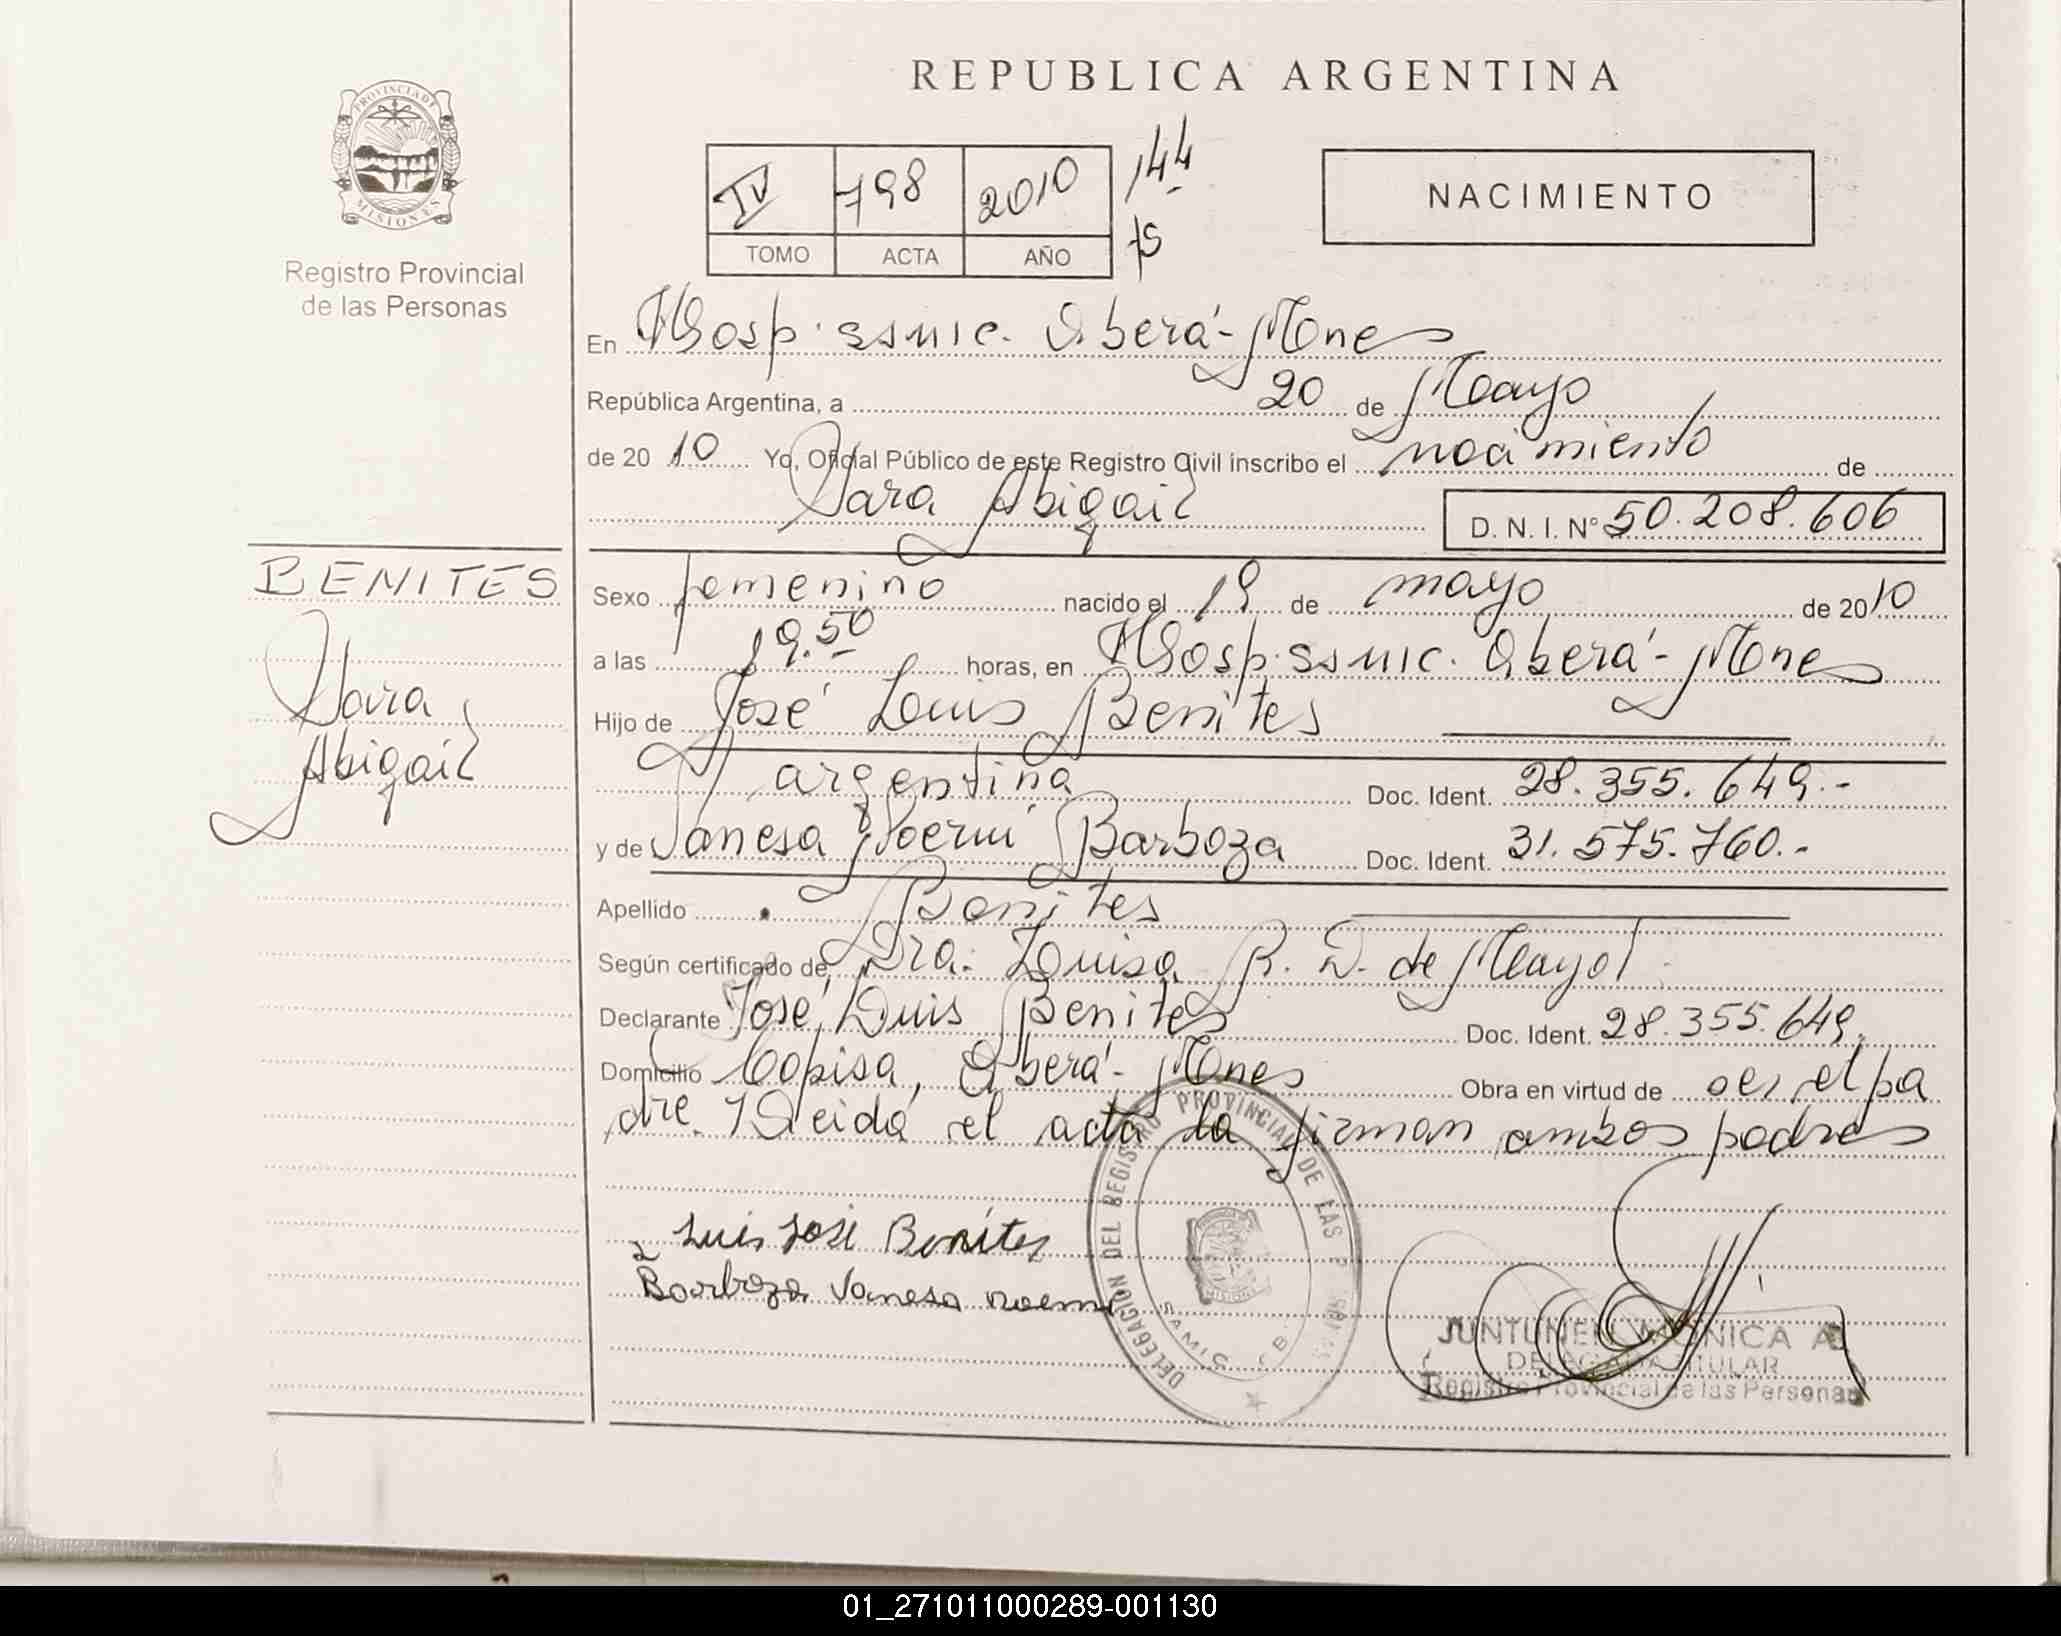 REPUBLICA ARGENTINA
PROVINCIA DE
MISIONES
Registro Provincial
de las Personas
IV 798 2010 144
TOMO ACTA AÑO
NACIMIENTO
En Hosp. ssmic. Oberá - Mnes
República Argentina, a 20 de Mayo
de 20 10 Yo, Oficial Público de este Registro Civil inscribo el nacimiento de
Sara Abigail D. N. I. Nº 50.208.606
BENITES
Sara
Abigail
Sexo femenino nacido el 19 de mayo de 2010
a las 19.50 horas, en Hosp. ssmic. Oberá - Mnes
Hijo de José Luis Benites
argentina Doc. Ident. 28.355.649.-
y de Vanesa Noemi Barboza Doc. Ident. 31.575.760.-
Apellido Benites
Según certificado de Dra. Luisa R. D. de Mayol
Declarante José Luis Benites Doc. Ident. 28.355.649.
Domicilio Copisa, Oberá - Mnes Obra en virtud de ser el pa
dre. Leida el acta la firman ambos padres
Luis José Benites
Barboza Vanesa noemi
DELEGACION DEL REGISTRO PROVINCIAL DE LAS
SAMIC
MISIONES
JUNTUNEN MONICA A.
DELEGADA TITULAR
Registro Provincial de las Personas
01_271011000289-001130